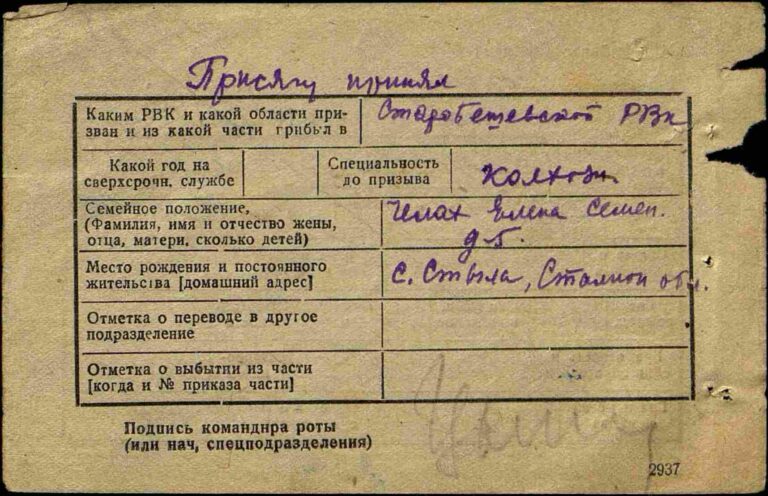 Присягу принял
Каким РВК и какой области при-
зван и из какой части грибыл в
Старобешевской РВК
Какой год на
сверхсрочн. службе
Специальность
до призыва
колхозн.
Семейное положение,
(Фамилия, имя и отчество жены,
отца, матери, сколько детей)
Челах Елена Семен.
Место рождения и постоянного
жительства [домашний адрес]
с. Стыла, Сталин обл.
Отметка о переводе в другое
подразделение
Отметка о выбытии из части
[когда и № приказа части]
Подпись командира роты
(или нач, спецподразделения)
2937